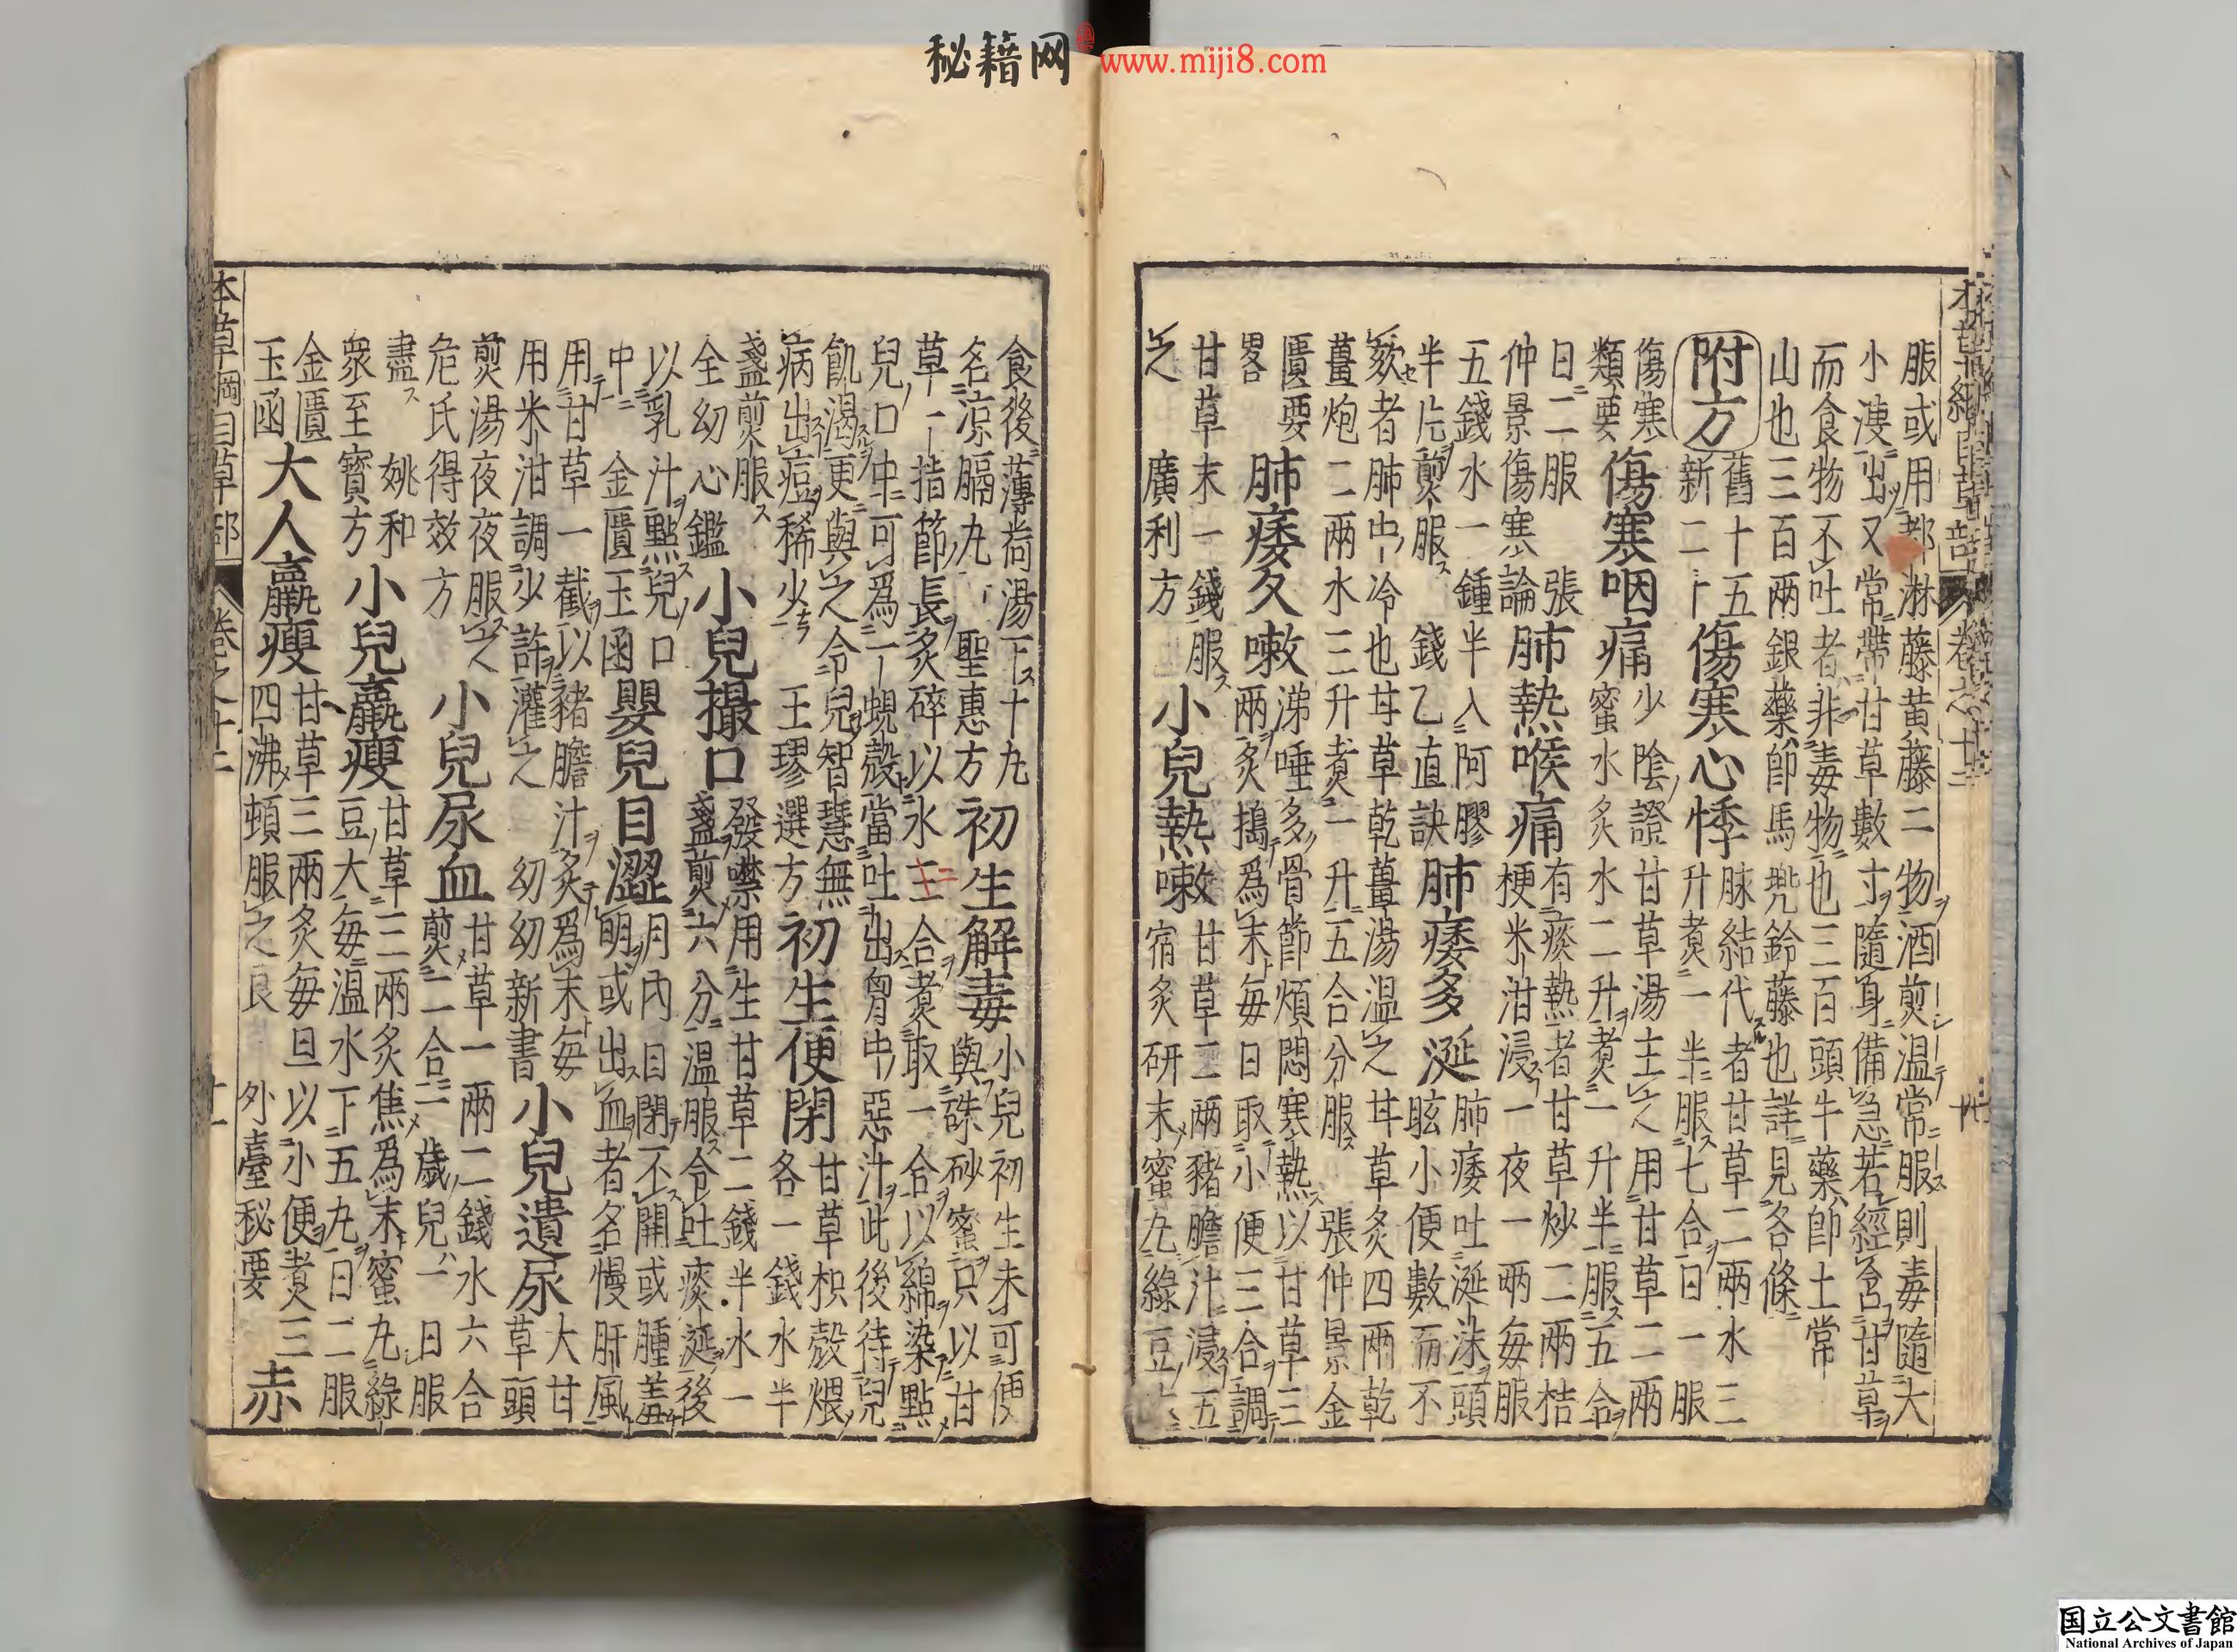 秘籍网 www.miji8.com
服或用都淋藤黄藤二物酒煎温常服則毒隨大
小溲出又常帶甘草數寸隨身備急若經含甘草
而食物不吐者非毒物也三百頭牛藥即土常
山也三百兩銀藥即馬兜鈴藤也詳見各條
附方
舊十五
新二十
傷寒心悸
脉結代者甘草二兩水三
升煮一半服七合日一服
傷寒
類要
傷寒咽痛
少陰證甘草湯主之用甘草二兩
蜜水炙水二升煮一升半服五合
日二服 張
仲景傷寒論
肺熱喉痛
有痰熱者甘草炒二兩桔
梗米泔浸一夜一兩每服
五錢水一鍾半入阿膠
半片煎服 錢乙直訣
肺痿多涎
肺痿吐涎沫頭
眩小便數而不
欬者肺中冷也甘草乾薑湯温之甘草炙四兩乾
薑炮二兩水三升煮一升五合分服 張仲景金
匱要
畧
肺痿久嗽
涕唾多骨節煩悶寒熱以甘草三
兩炙搗為末每日取小便三合調
甘草末一錢服
之 廣利方
小兒熱嗽
甘草二兩豬膽汁浸五
宿炙研末蜜丸綠豆
食後薄荷湯下十九
名凉膈丸 聖惠方
初生解毒
小兒初生未可便
與硃砂蜜只以甘
草一指節長炙碎以水二合煮取一合以綿染點
兒口中可為一蜆殼當吐出胷中惡汁此後待兒
飢渴更與之令兒智慧無
病出痘稀少 王璆選方
初生便閉
甘草枳殼煨
各一錢水半
盞煎服
全幼心鑑
小兒撮口
發噤用生甘草二錢半水一
盞煎六分温服令吐痰涎後
以乳汁點兒口
中 金匱玉函
嬰兒目澀
月內目閉不開或腫羞
明或出血者名慢肝風
用甘草一截以豬膽汁炙為末每
用米泔調少許灌之 幼幼新書
小兒遺尿
大甘
草頭
煎湯夜夜服之
危氏得效方
小兒尿血
甘草一兩二錢水六合
煎二合一歲兒一日服
盡 姚和
眾至寶方
小兒羸瘦
甘草三兩炙焦為末蜜丸綠
豆大每温水下五丸日二服
金匱
玉函
大人羸瘦
甘草三兩炙每旦以小便煮三
四沸頓服之良 外臺秘要
赤
本草綱目草部 卷之十二 十一
国立公文書館
National Archives of Japan